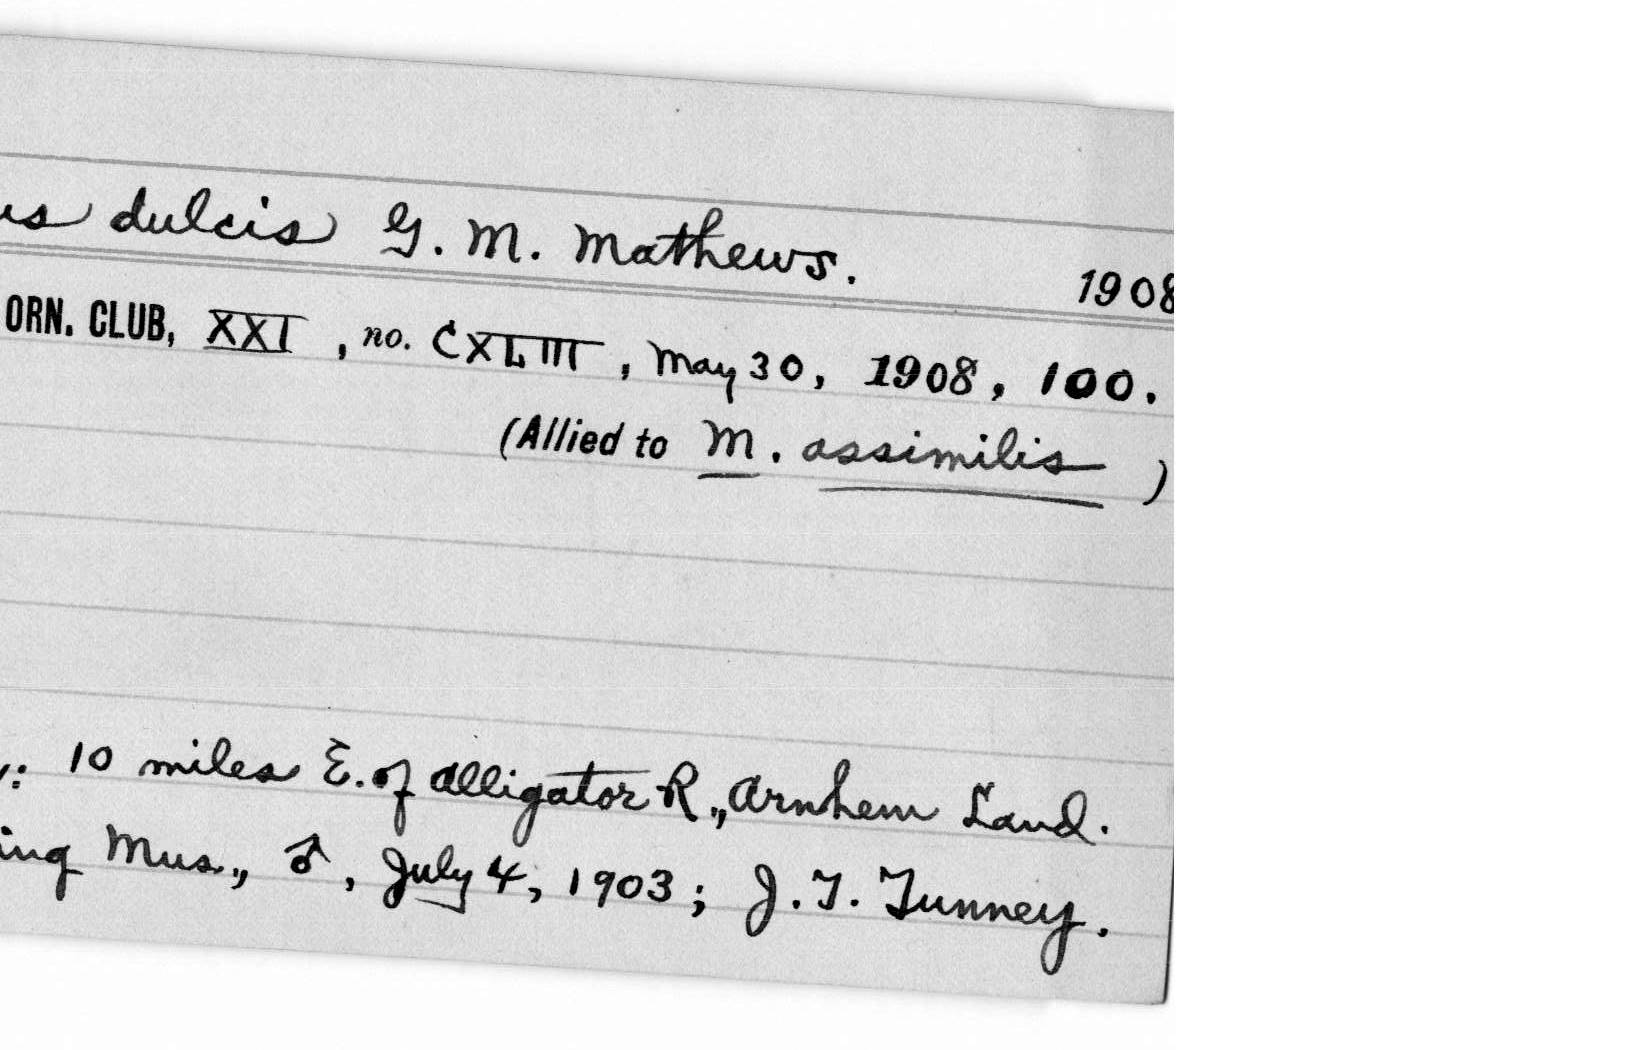 us dulcis G. M. Mathews. 1908
ORN. CLUB, XXI, no. CXLIII, May 30, 1908, 100.
(Allied to M. assimilis )
.: 10 miles E. of Alligator R., Arnhem Land.
ing Mus., ♂, July 4, 1903; J. T. Tunney.